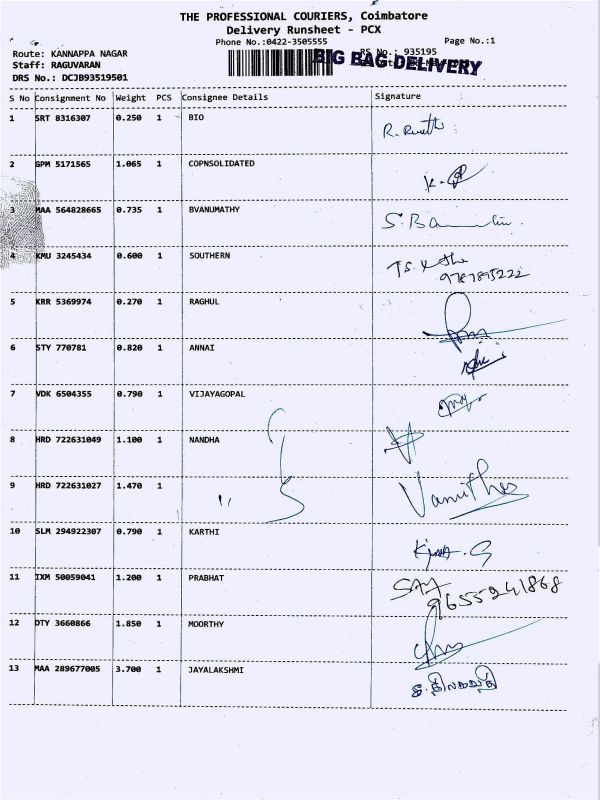 THE PROFESSIONAL COURIERS, Coimbatore
Delivery Runsheet - PCX
Phone No.:0422-3505555 Page No.:1
Route: KANNAPPA NAGAR RS No.: 935195
Staff: RAGUVARAN BIG BAG DELIVERY
DRS No.: DCJB93519501
S No Consignment No Weight PCS Consignee Details Signature
1 SRT 8316307 0.250 1 BIO
2 GPM 5171565 1.065 1 COPNSOLIDATED
3 MAA 564828665 0.735 1 BVANUMATHY
4 KMU 3245434 0.600 1 SOUTHERN
9787895222
5 KRR 5369974 0.270 1 RAGHUL
6 STY 770781 0.820 1 ANNAI
7 VDK 6504355 0.790 1 VIJAYAGOPAL
8 HRD 722631049 1.100 1 NANDHA
9 HRD 722631027 1.470 1 " Vanitha
10 SLM 294922307 0.790 1 KARTHI
11 IXM 50059041 1.200 1 PRABHAT
9655241868
12 OTY 3660866 1.850 1 MOORTHY
13 MAA 289677005 3.700 1 JAYALAKSHMI